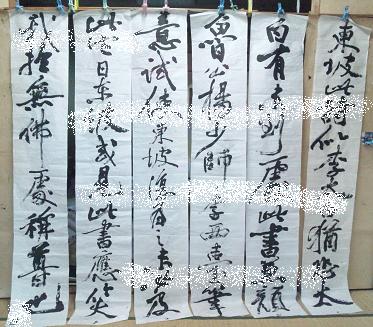 東坡此詩似李太猶恐太
白有未到處此書兼顏
魯公楊少師李西臺筆
意試使東坡復為之未必及
此它日東坡或見此書應笑
我於無佛處稱尊也